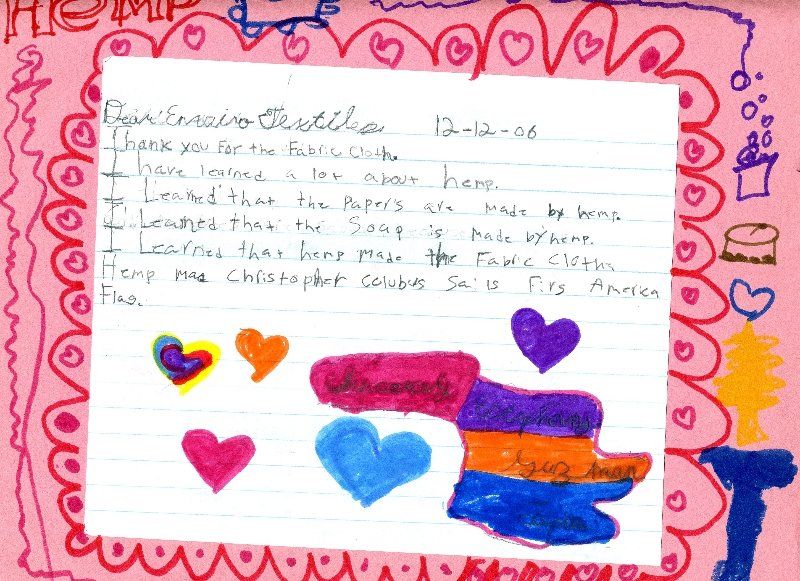 HEMP
Dear Enviro Textiles, 12-12-06
Thank you For the Fabric Cloth.
I have learned a lot about hemp.
I Learned that the papers are made by hemp.
I Learned that the Soap is made by hemp.
I Learned that hemp made the Fabric Cloths
Hemp mad Christopher Colubus Sails Firs America
Flag.
Sincerely
Stephany
Guzman